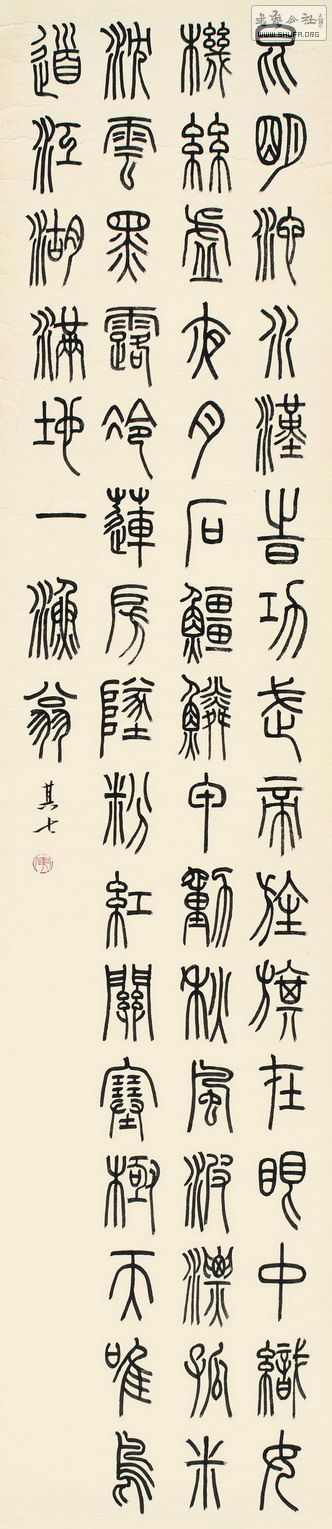 昆明池水漢時功武帝旌旗在眼中織女
機絲虛夜月石鯨鱗甲動秋風波漂孤米
沈雲黑露冷蓮房墜粉紅關塞極天唯鳥
道江湖滿地一漁翁 其七
WWW.SHUFA.ORG